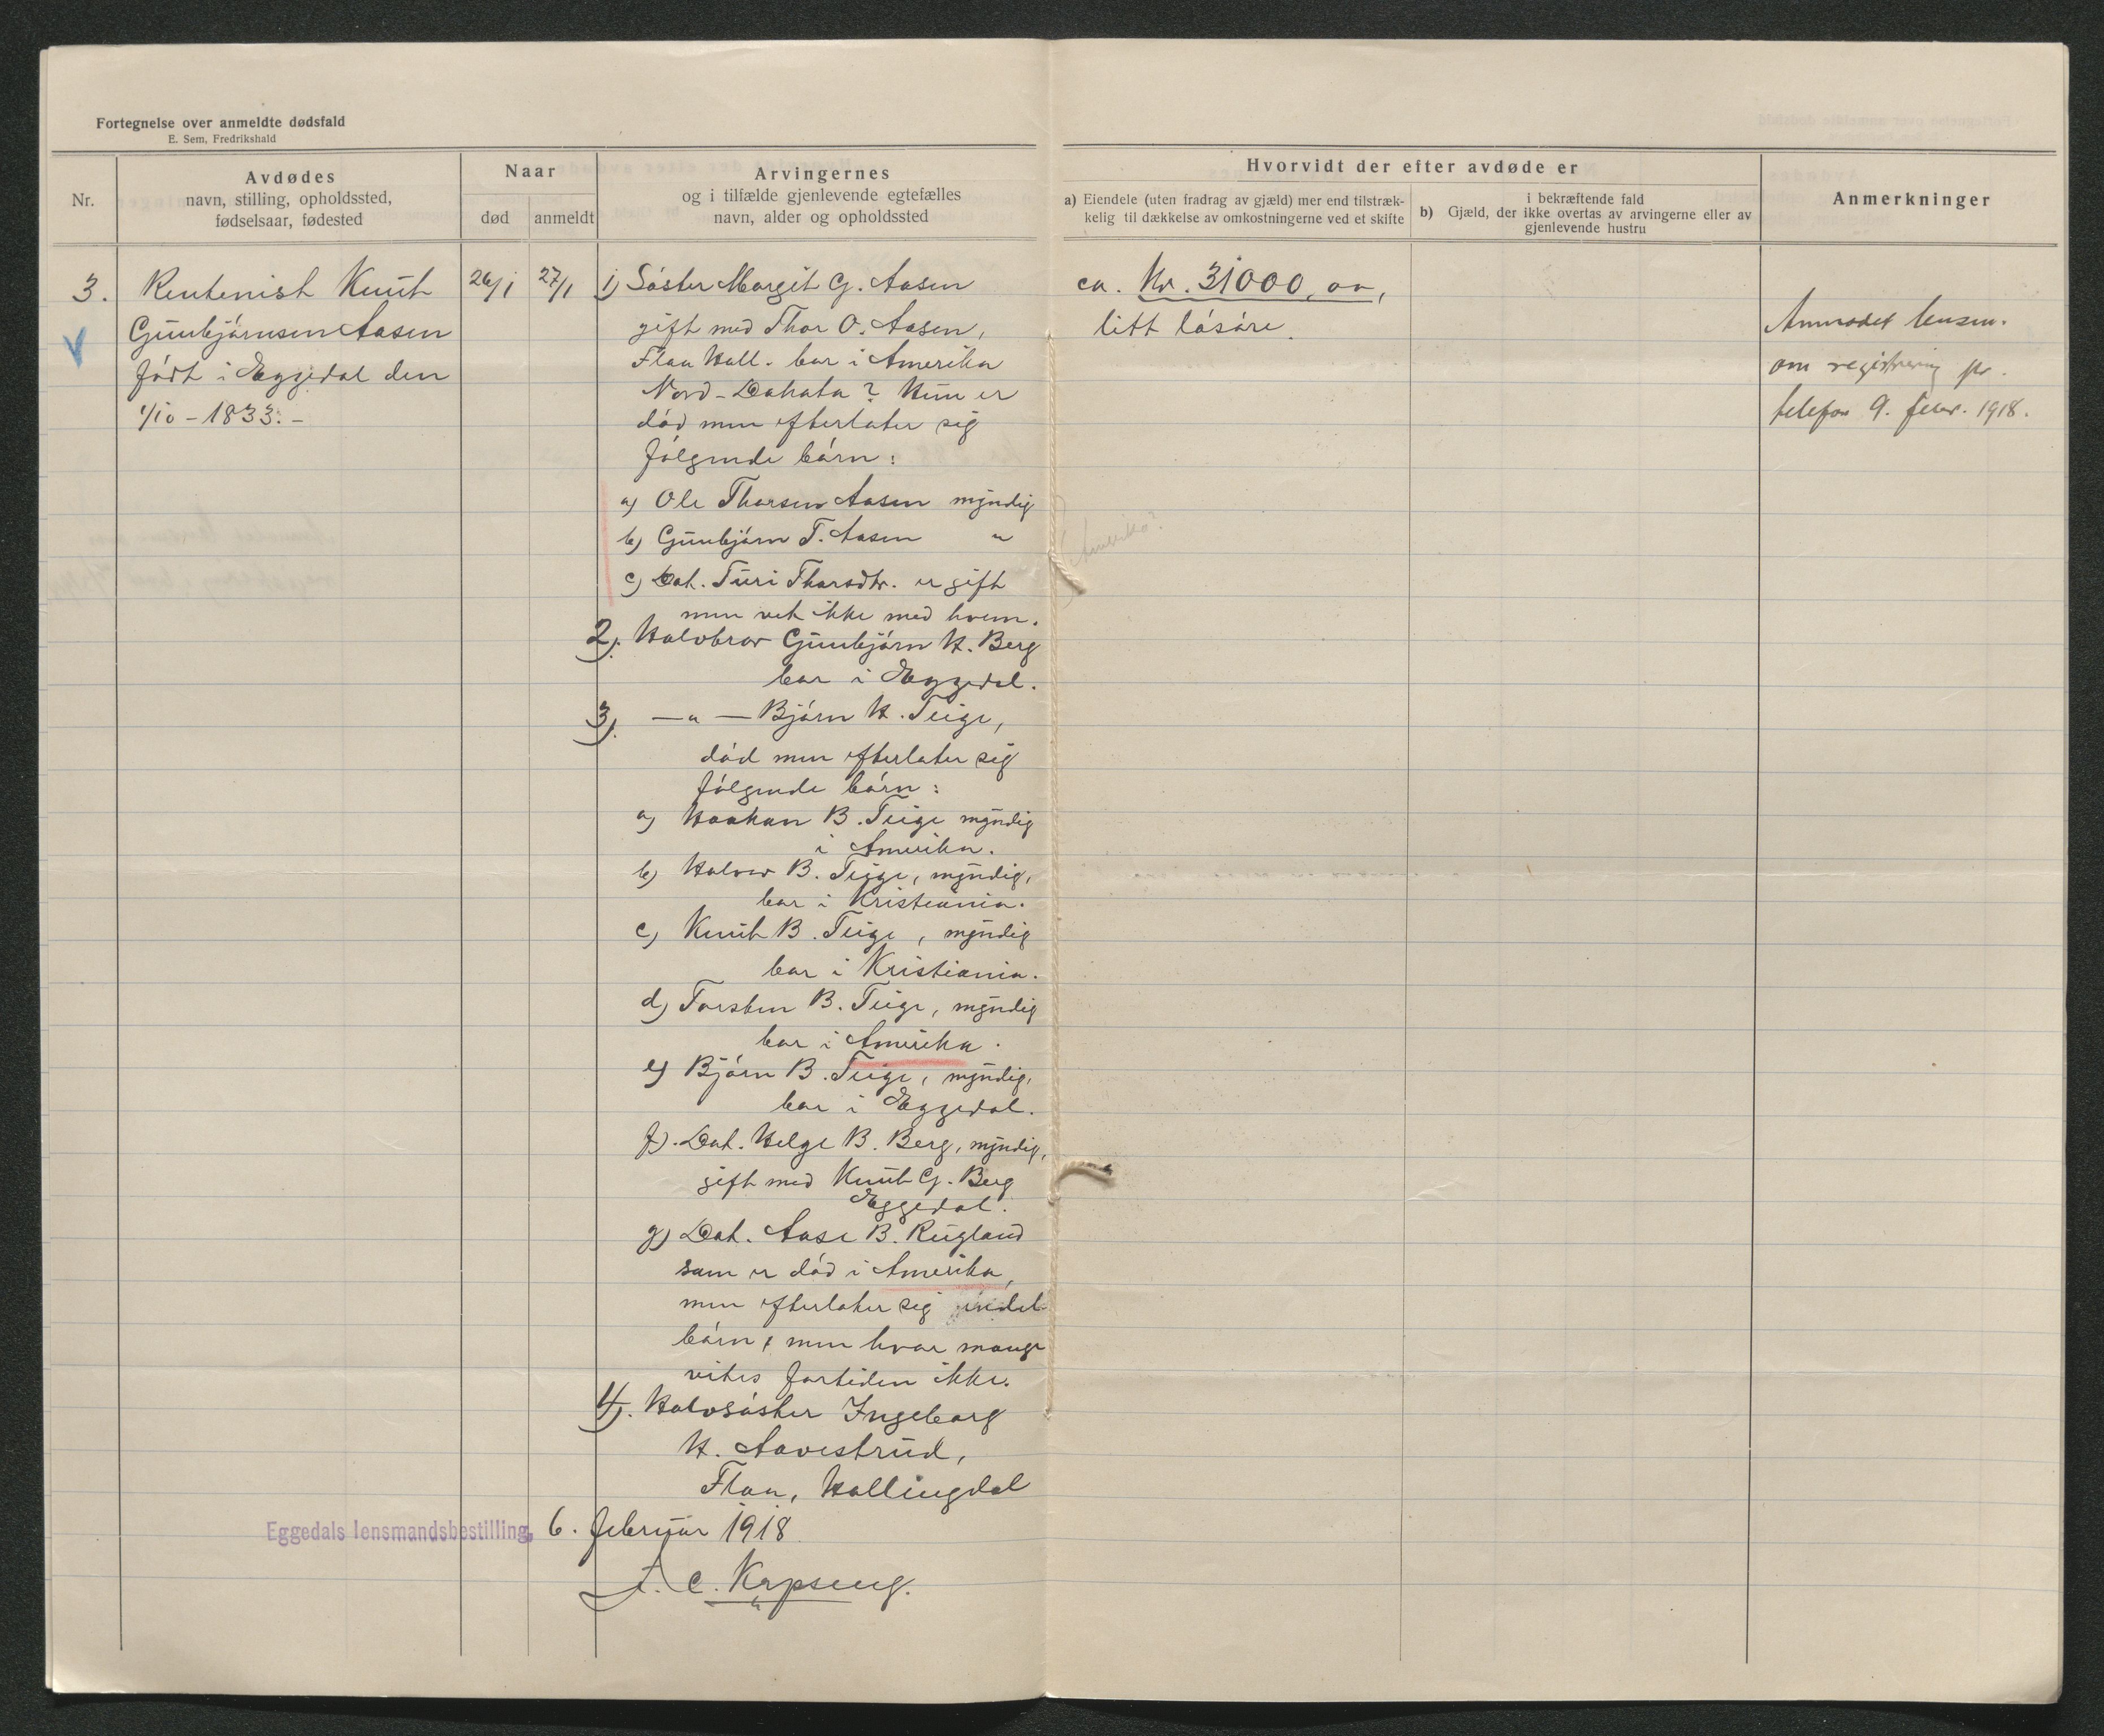 Fortegnelse over anmeldte dødsfald
E. Sem, Fredrikshald
Nr.
Avdødes
navn, stilling, opholdssted,
fødselsaar, fødested
Naar
død
anmeldt
Arvingernes
og i tilfælde gjenlevende egtefælles
navn, alder og opholdssted
Hvorvidt der efter avdøde er
a) Eiendele (uten fradrag av gjæld) mer end tilstræk-
kelig til dækkelse av omkostningerne ved et skifte
b) Gjæld, der i bekræftende fald
ikke overtas av arvingerne eller av
gjenlevende hustru
Anmerkninger
3.
Rentenist Knut
Gunbjørnsen Aasen
født i Eggedal den
1/10 - 1833. -
26/1
27/1
1) Søster Margit G. Aasen
gift med Thor O. Aasen,
Flaa Hall. bor i Amerika
Nord-Dakata? Hun er
død men efterlater sig
følgende børn:
a) Ole Thorsen Aasen myndig
b) Gunbjørn T. Aasen "
c) Dat. Turi Thorsdtr. er gift
men vet ikke med hvem.
2). Halvbror Gunbjørn H. Berg
bor i Eggedal.
3). — " — Bjørn H. Teige,
død men efterlater sig
følgende børn:
a) Haakon B. Teige myndig
i Amerika.
b) Halvor B. Teige, myndig,
bor i Kristiania.
c) Knut B. Teige, myndig
bor i Kristiania.
d) Torsten B. Teige, myndig
bor i Amerika.
e) Bjørn B. Teige, myndig,
bor i Eggedal.
f). Dat. Helge B. Berg, myndig,
gift med Knut G. Berg
Eggedal.
g) Dat. Aase B. Rugland
som er død i Amerika,
men efterlater sig endel
børn, men hvor mange
vites fortiden ikke.
4). Halvsøster Ingeborg
H. Aavestrud,
Flaa, Hallingdal
Eggedals lensmandsbestilling, 6. februar 1918
ca. Kr. 31000,oo,
litt løsøre.
Amerika?
Anmodet lensm.
om registrering pr.
telefon 9. febr. 1918.